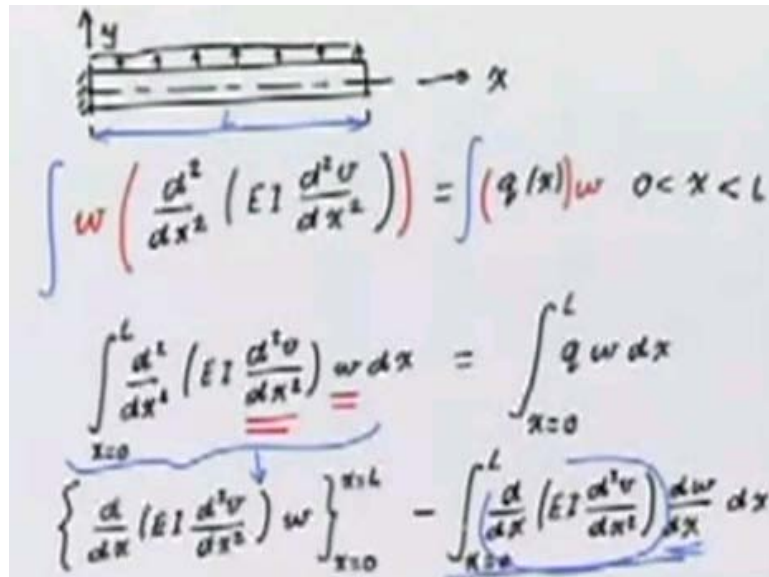 y
x
L
∫ w ( d²/dx² ( EI d²v/dx² ) ) = ∫ ( q(x) ) w 0 < x < L
∫_{x=0}^{L} d²/dx² ( EI d²v/dx² ) w dx = ∫_{x=0}^{L} q w dx
{ d/dx ( EI d²v/dx² ) w }_{x=0}^{x=L} - ∫_{x=0}^{L} d/dx ( EI d²v/dx² ) dw/dx dx